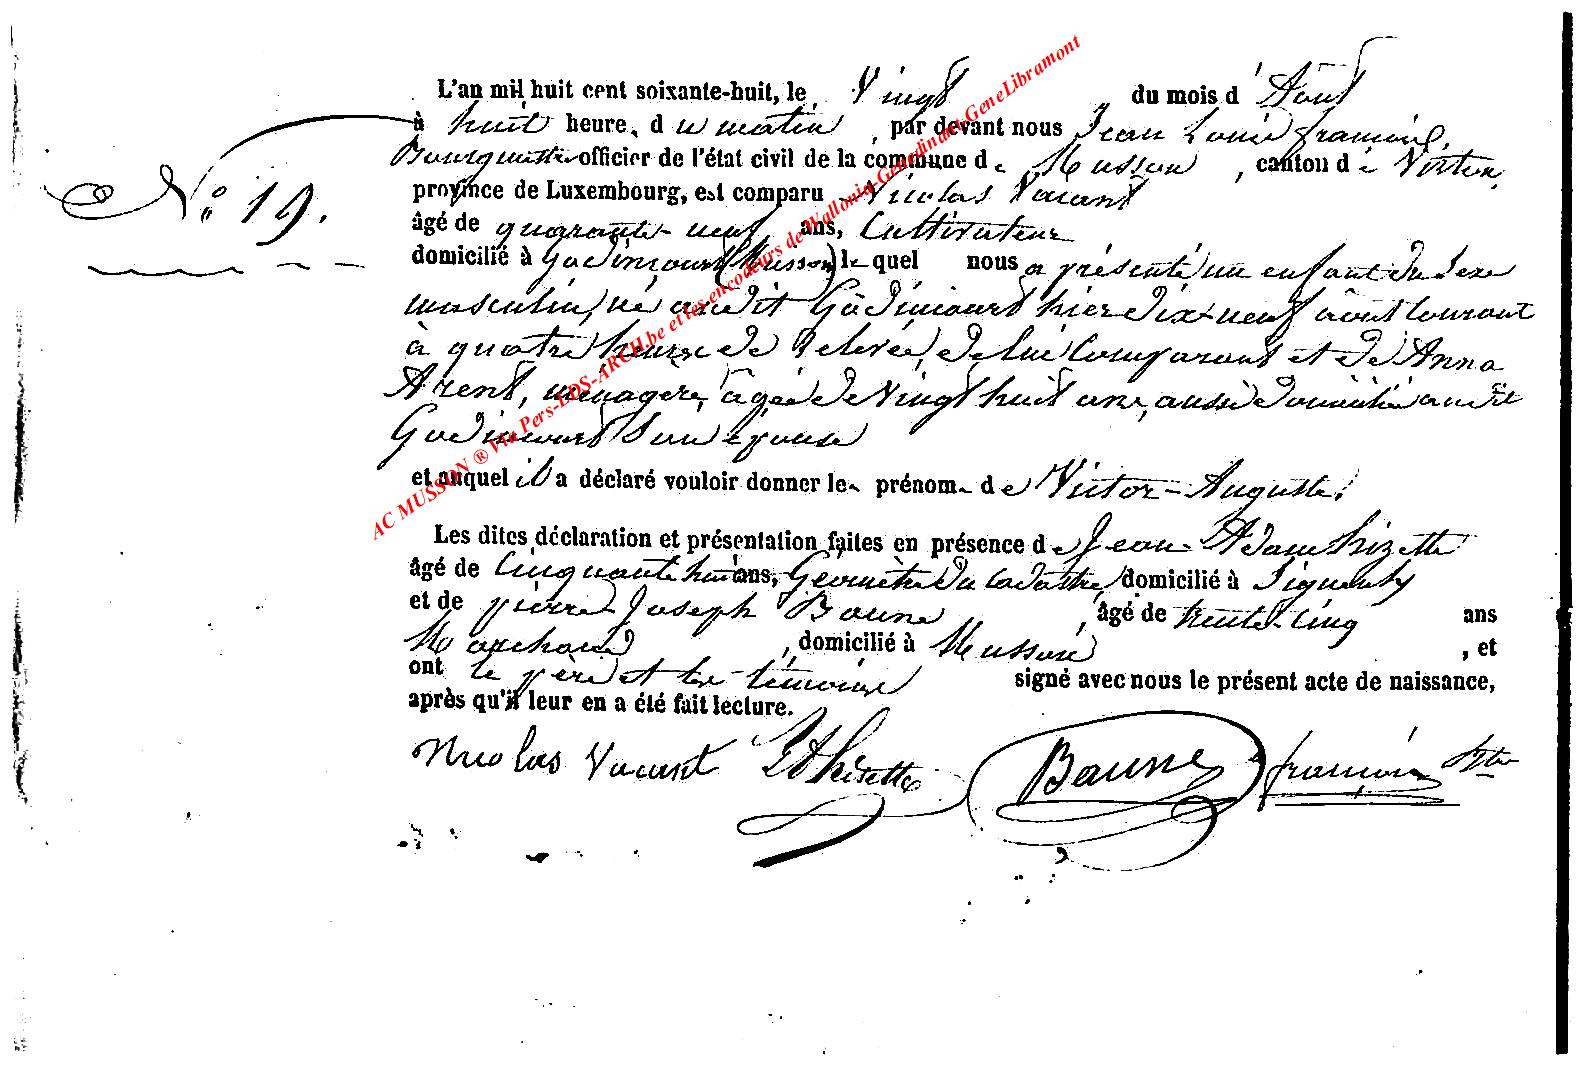 L'an mil huit cent soixante-huit, le Vingt du mois d'Août
à huit heures du matin, par devant nous Jean Louis François,
Bourgmestre officier de l'état civil de la commune de Musson, canton de Virton,
N° 19.
province de Luxembourg, est comparu Nicolas Vacant
âgé de quarante-neuf ans, Cultivateur
domicilié à Godincourt (Musson) lequel nous a présenté un enfant du sexe
masculin, né au dit Godincourt hier dix-neuf août courant
à quatre heures de relevée, de lui Comparant et de Anna
Arent, ménagère, âgée de Vingt huit ans, aussi domiciliée au dit
Godincourt Son épouse
et auquel il a déclaré vouloir donner les prénoms de Victor-Auguste.
Les dites déclaration et présentation faites en présence de Jean Adam Hizette
âgé de Cinquante huit ans, Géomètre du Cadastre, domicilié à Signeulx
et de pierre-Joseph Baune, âgé de trente-cinq ans
Marchand, domicilié à Musson, et
ont le père et les témoins signé avec nous le présent acte de naissance,
après qu'il leur en a été fait lecture.
Nicolas Vacant Hizette Baune françois
AC MUSSON ® Via Pers-LDS-ARCH.be et les encodeurs de Wallonia-Genedinant-GeneLibramont